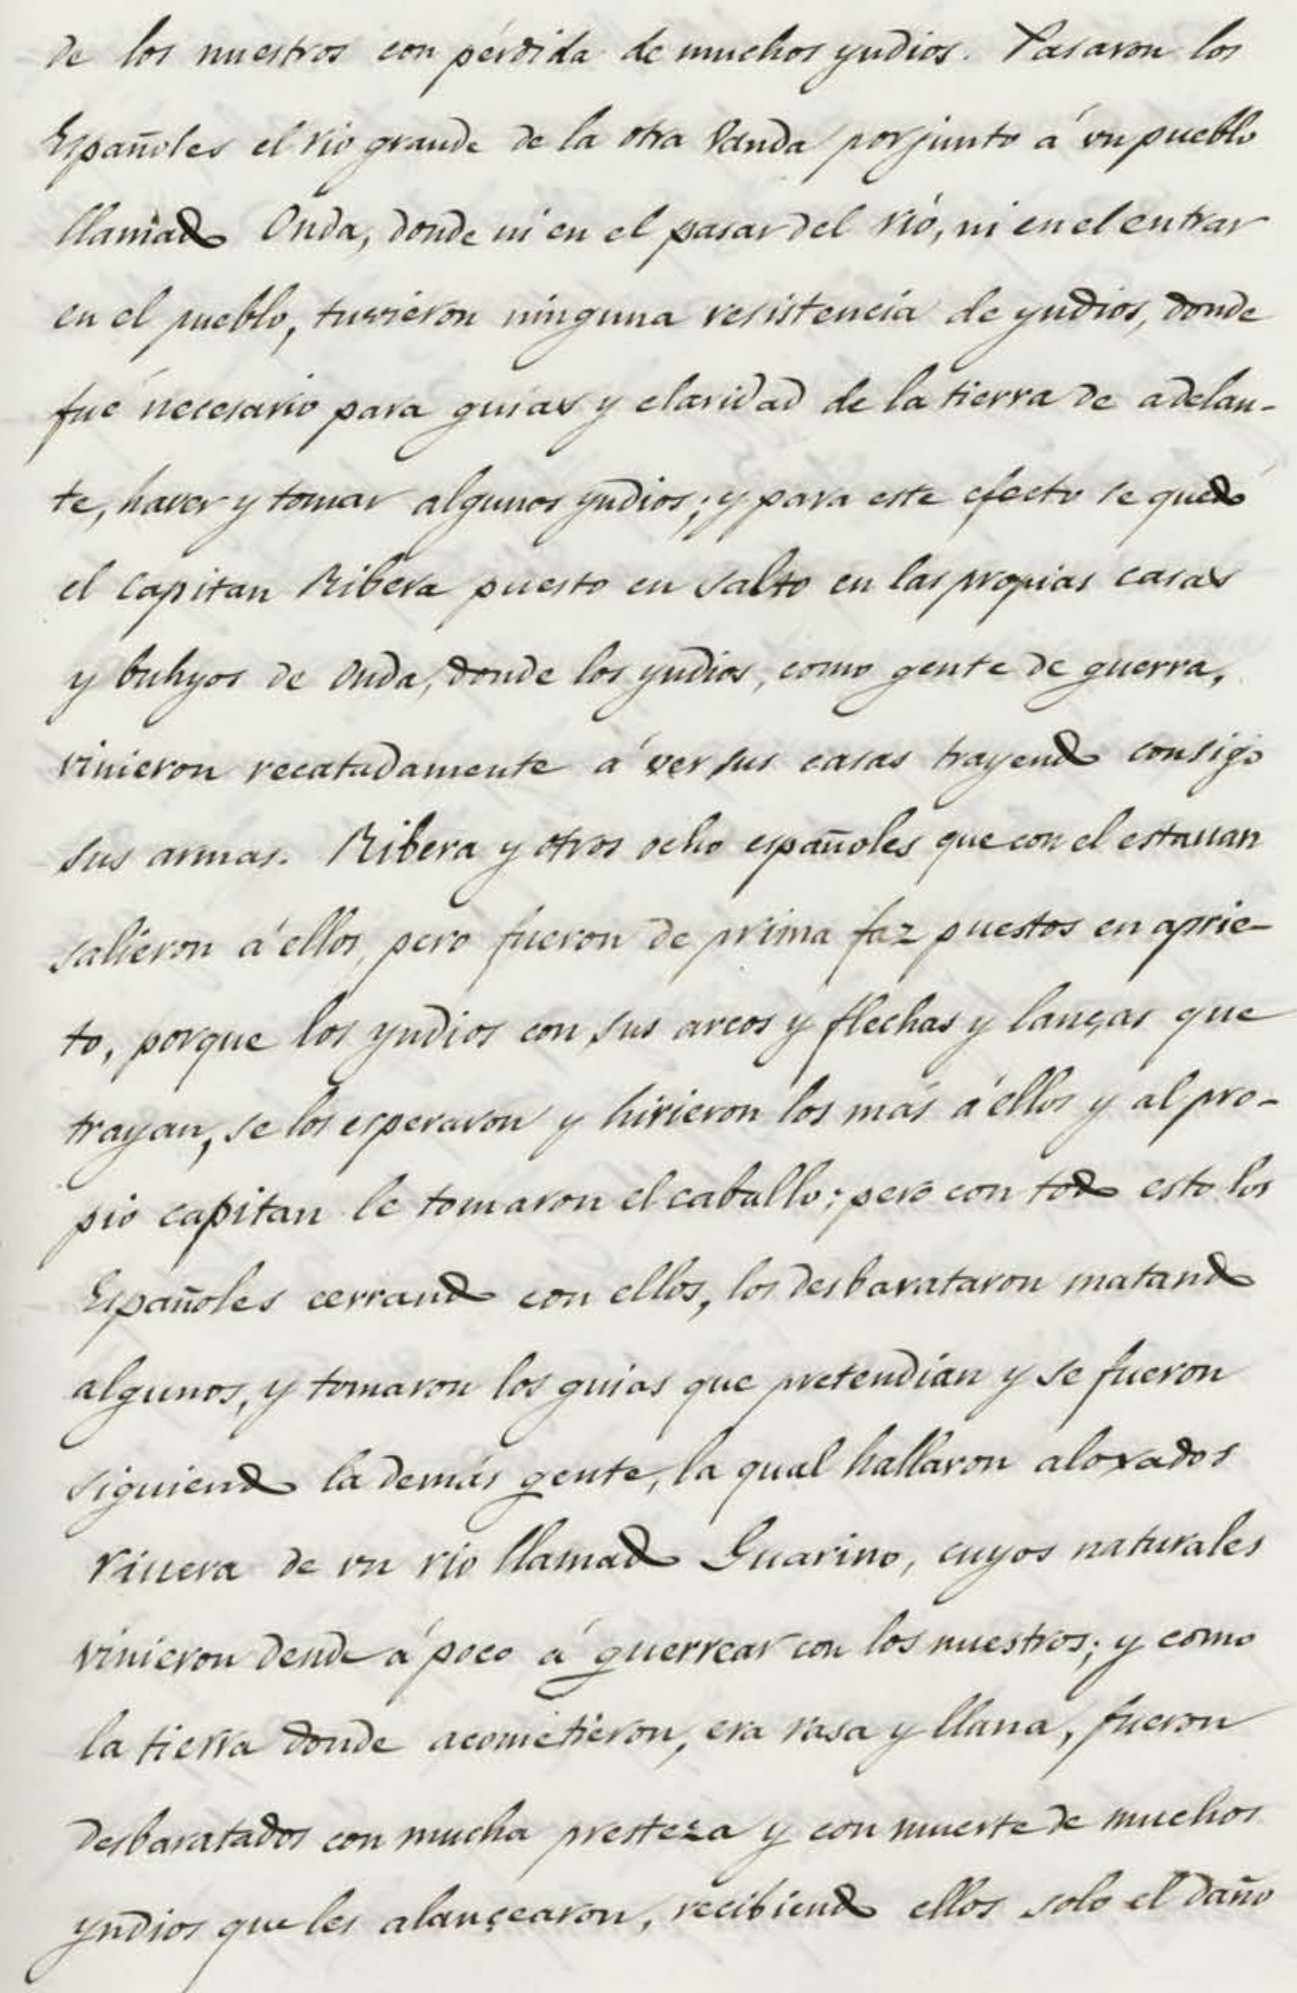 de los nuestros con pérdida de muchos yndios. Pasaron los
Españoles el rio grande de la otra vanda por junto á vn pueblo
llamado Onda, donde ni en el pasar del rio, ni en el entrar
en el pueblo, tuvieron ninguna resistencia de yndios, donde
fué necesario para guias y claridad de la tierra de adelan-
te, haver y tomar algunos yndios; y para este efecto se quedó
el capitan Ribera puesto en salto en las propias casas
y buhyos de Onda, donde los yndios, como gente de guerra,
vinieron recatadamente á ver sus casas trayendo consigo
sus armas. Ribera y otros ocho españoles que con el estauan
salieron á ellos, pero fueron de prima faz puestos en aprie-
to, porque los yndios con sus arcos y flechas y lanças que
trayan, se los esperaron y hirieron los más á ellos y al pro-
pio capitan le tomaron el caballo; pero con todo esto los
Españoles cerrando con ellos, los desbarataron matando
algunos, y tomaron los guias que pretendian y se fueron
siguiendo la demás gente, la qual hallaron aloxados
riuera de vn rio llamado Guarino, cuyos naturales
vinieron dende á poco á guerrear con los nuestros; y como
la tierra donde acometieron, era rasa y llana, fueron
desbaratados con mucha presteza y con muerte de muchos
yndios que les alançearon, recibiendo ellos solo el daño